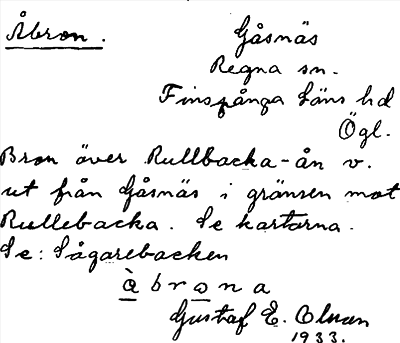 Åbron. Gåsnäs
Regna sn.
Finspånga läns hd
Ögl.
Bron över Rullbacka-ån v.
ut från Gåsnäs i gränsen mot
Rullebacka. Se kartorna.
Se: Sågarebacken
å b r o n a
Gustaf E. Olson
1933.